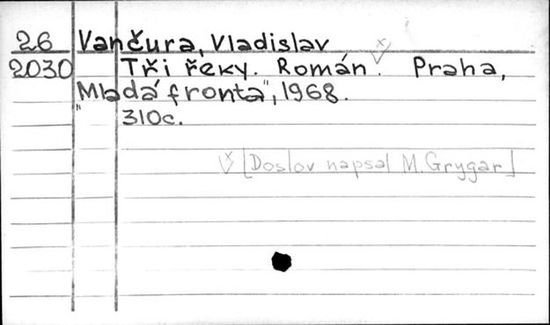 26 Vančura, Vladislav
2030 Tři řeky. Román. Praha,
"Mladá fronta", 1968.
310c.
[Doslov napsal M. Grygar]